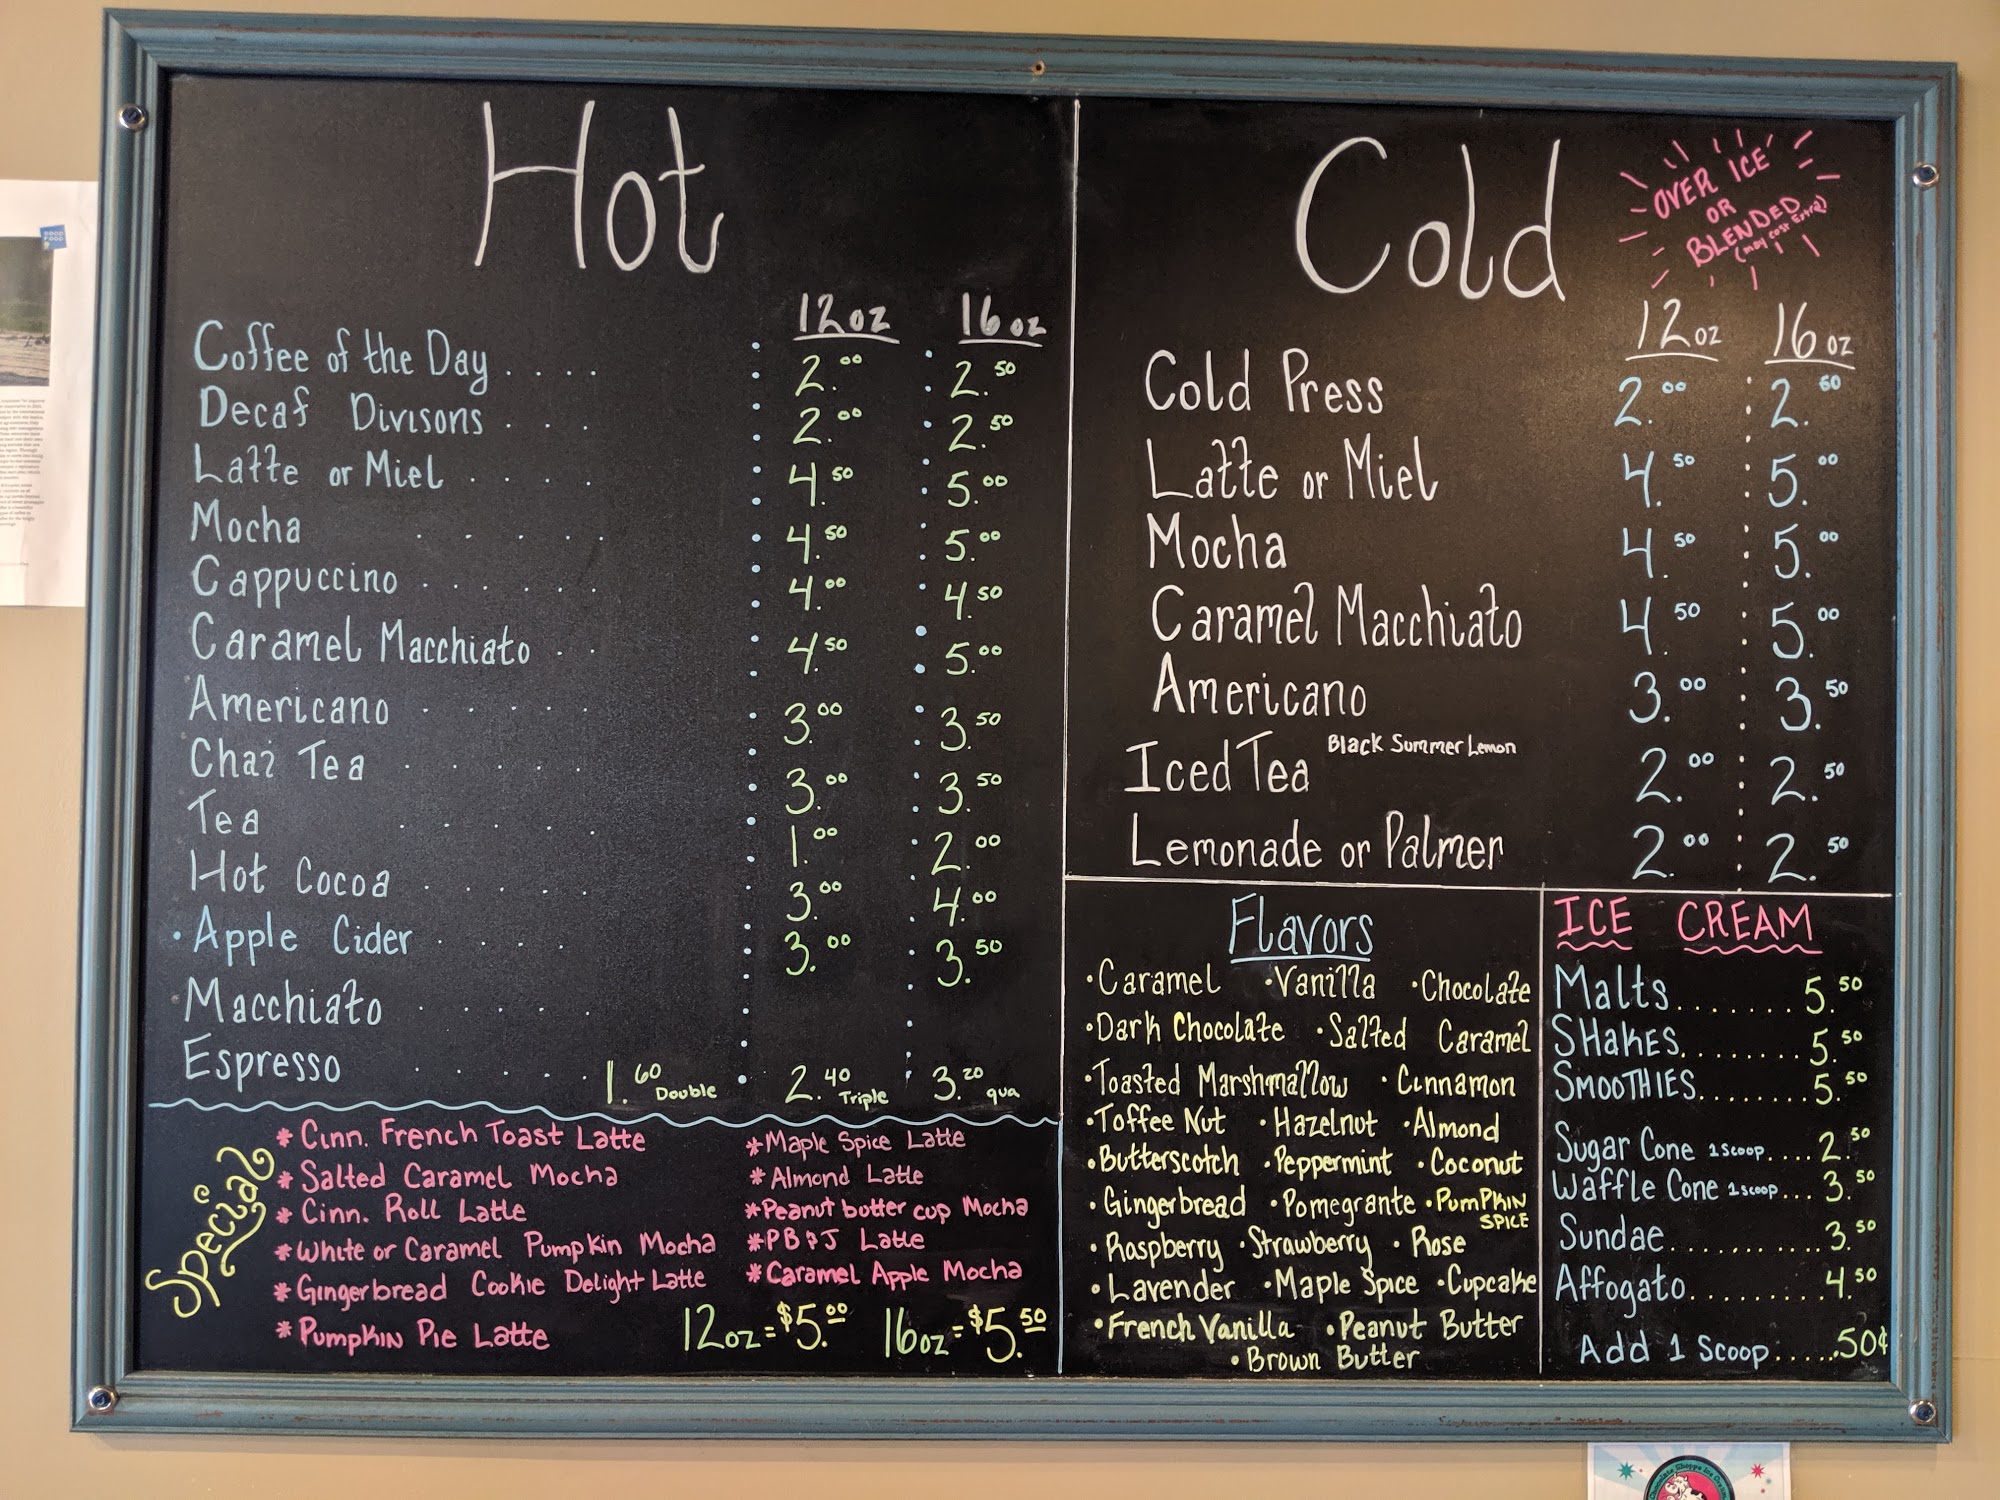 Hot
12oz 16oz
Coffee of the Day . . . . 2.00 2.50
Decaf Divisons . . . 2.00 2.50
Latte or Miel . . . . 4.50 5.00
Mocha . . . . . 4.50 5.00
Cappuccino . . . . . 4.00 4.50
Caramel Macchiato . . 4.50 5.00
Americano . . . . . 3.00 3.50
Chai Tea . . . . . 3.00 3.50
Tea . . . . . 1.00 2.00
Hot Cocoa . . . . 3.00 4.00
• Apple Cider . . . . 3.00 3.50
Macchiato . . . . .
Espresso . . . . . 1.60 Double 2.40 Triple 3.20 qua
Special
* Cinn. French Toast Latte
* Salted Caramel Mocha
* Cinn. Roll Latte
* White or Caramel Pumpkin Mocha
* Gingerbread Cookie Delight Latte
* Pumpkin Pie Latte
* Maple Spice Latte
* Almond Latte
* Peanut butter cup Mocha
* PB&J Latte
* Caramel Apple Mocha
12oz = $5.00 16oz = $5.50
Cold
OVER ICE
OR
BLENDED
(may cost Extra)
12oz 16oz
Cold Press 2.00 2.60
Latte or Miel 4.50 5.00
Mocha 4.50 5.00
Caramel Macchiato 4.50 5.00
Americano 3.00 3.50
Iced Tea Black Summer Lemon 2.00 2.50
Lemonade or Palmer 2.00 2.50
Flavors
• Caramel • Vanilla • Chocolate
• Dark Chocolate • Salted Caramel
• Toasted Marshmallow • Cinnamon
• Toffee Nut • Hazelnut • Almond
• Butterscotch • Peppermint • Coconut
• Gingerbread • Pomegrante • Pumpkin SPICE
• Raspberry • Strawberry • Rose
• Lavender • Maple Spice • Cupcake
• French Vanilla • Peanut Butter
• Brown Butter
ICE CREAM
Malts . . . . . . . 5.50
SHAKES . . . . . . . . 5.50
SMOOTHIES . . . . . . . 5.50
Sugar Cone 1 Scoop . . . . 2.50
Waffle Cone 1 scoop . . . 3.50
Sundae . . . . . . . . . . 3.50
Affogato . . . . . . . . . 4.50
Add 1 Scoop . . . . . .50¢